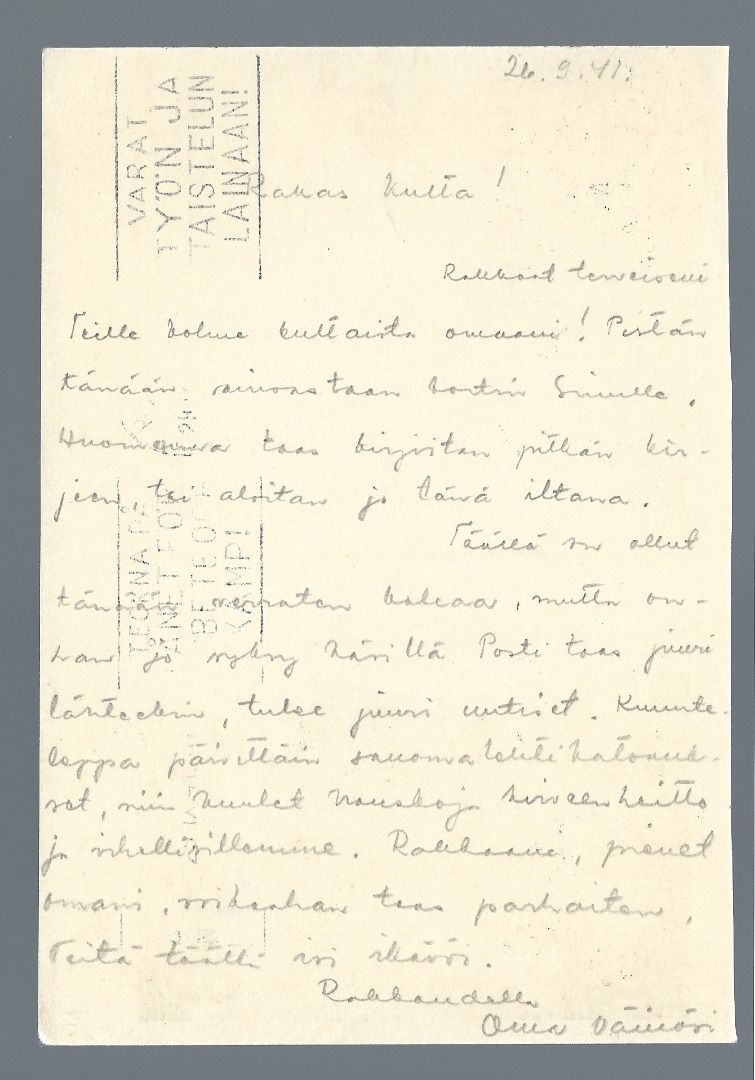 26.9.41.
VARAT
TYÖN JA
TAISTELUN
LAINAAN!
Rakas kulta!
Rakkaat terveiseni
Teille kolme kultaista omaani! Pistän
tänään ainoastaan kortin Sinulle.
Huomenna taas kirjoitan pitkän kir-
jeen, tai aloitan jo tänä iltana.
Täällä on ollut
tänään verraten kaleaa, mutta on-
han jo syksy käsillä Posti taas juuri
lähteekin, tulee juuri uutiset. Kuunte-
leppa päivittäin sanomalehtikatsauk-
set, niin kuulet hauskoja
ja . Rakkaani, pienet
omani, voikaahan taas parhaiten,
Teitä täällä ikävöi.
Rakkaudella
Oma Väinösi